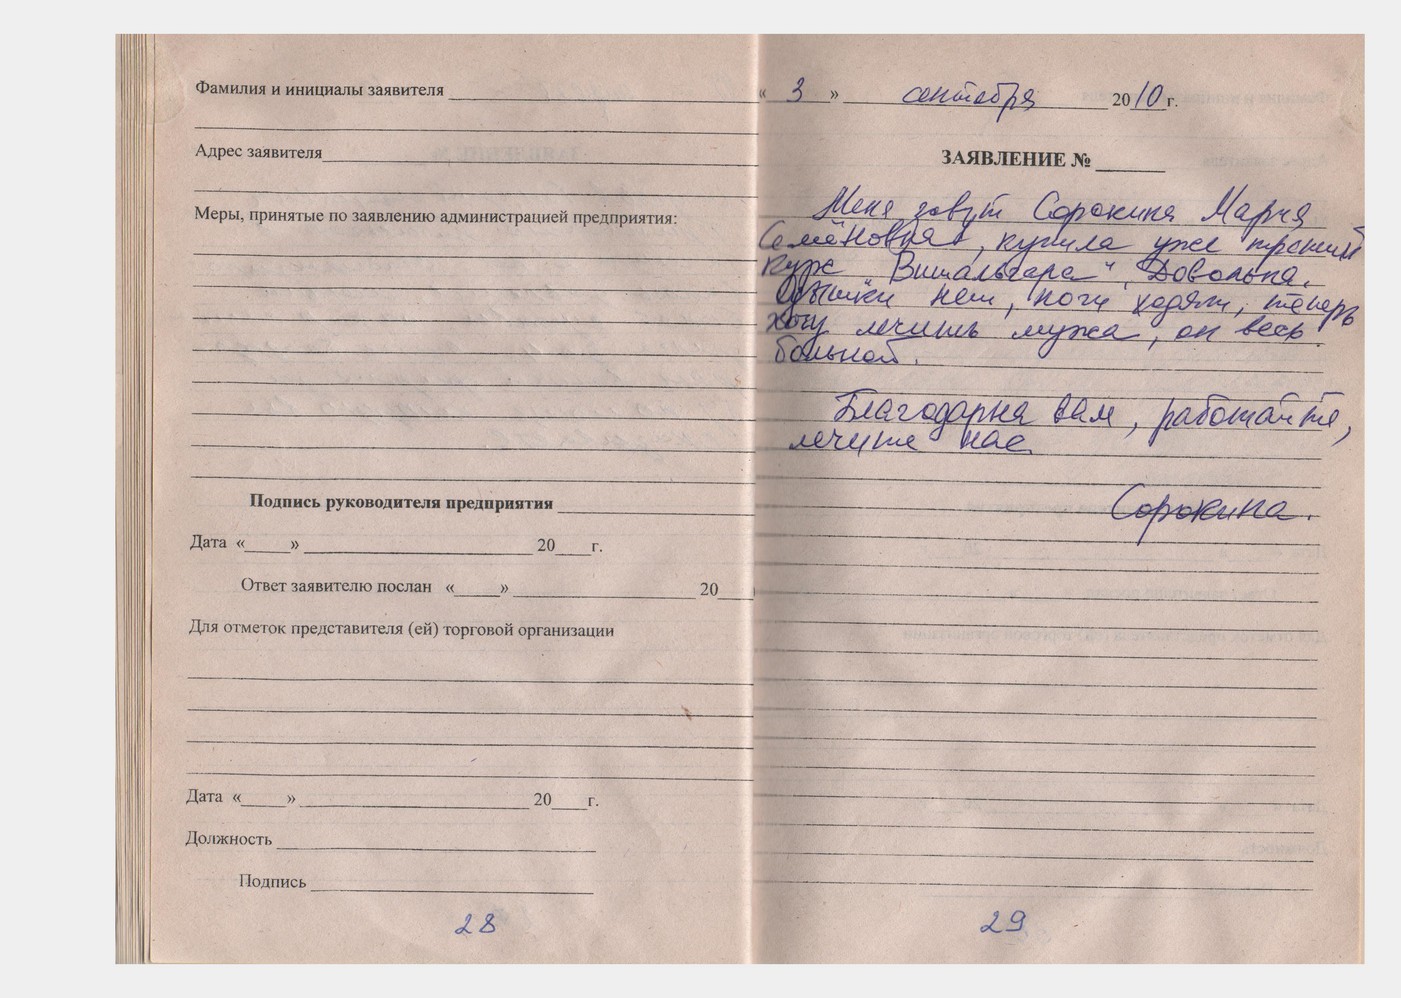 Фамилия и инициалы заявителя
Адрес заявителя
Меры, принятые по заявлению администрацией предприятия:
Подпись руководителя предприятия
Дата «____» ____ 20____г.
Ответ заявителю послан «____» ____ 20____
Для отметок представителя (ей) торговой организации
Дата «____» ____ 20____г.
Должность
Подпись
28
« 3 » сентября 2010 г.
ЗАЯВЛЕНИЕ № ____
Меня зовут Сорокина Мария
Семёновна, купила уже третий
курс "Витальгара", Довольна.
Одышки нет, ноги ходят, теперь
хочу лечить мужа, он весь
больной.
Благодарна вам, работайте,
лечите нас
Сорокина.
29